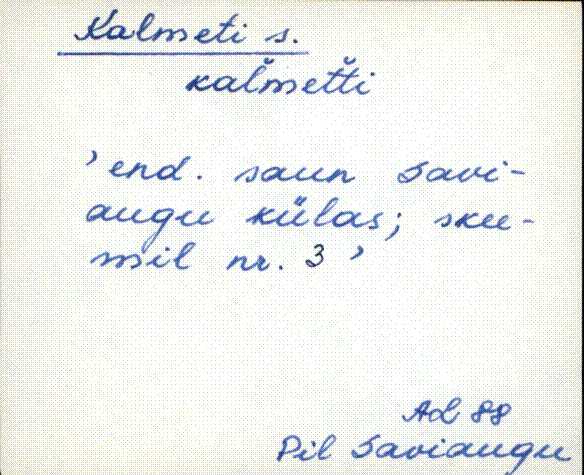 Kalmeti s.
kal̆met̆ti
’end. saun Savi-
augu külas; sku-
mil nr. 3’
AL 88
Pil Saviaugu